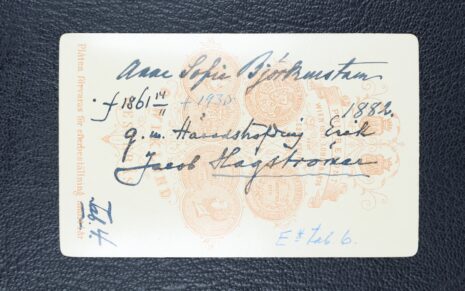 Anna Sofia Björkenstam
f 1861 14/11 † 1930
1882.
g.m. Häradshöfding Erik
Jacob Hägströmer
Tab. 4.
E# Tab. 6.
Plåten förvaras för efterbeställning